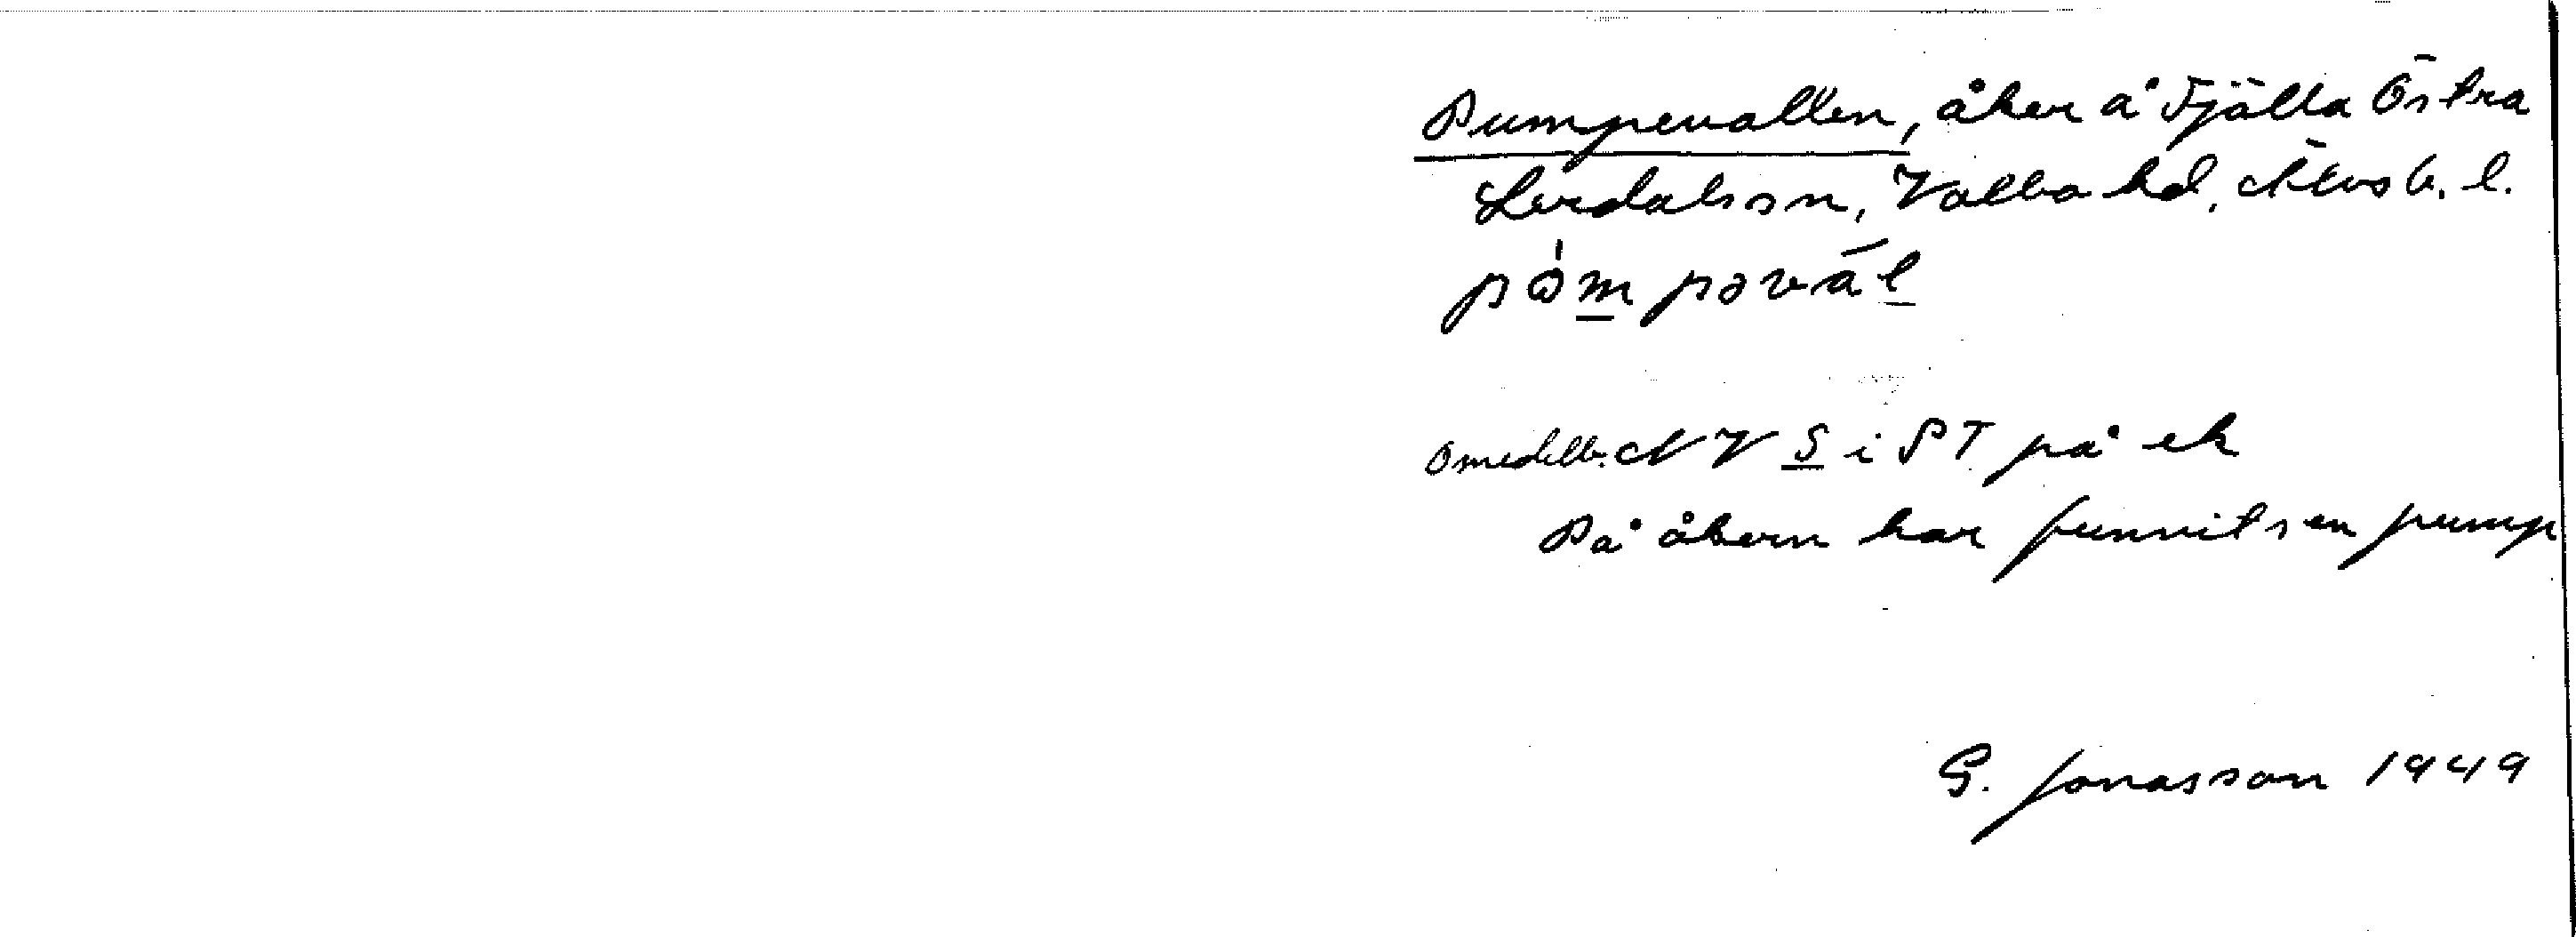 Pumpevallen, åker å Fjälla Östra
Lerdals sn, Valbo hd, Älvsb. l.
pòmpəvál
omedelb. N V S i ST på ek
På åkern har funnits en pump
G. Jonasson 1949